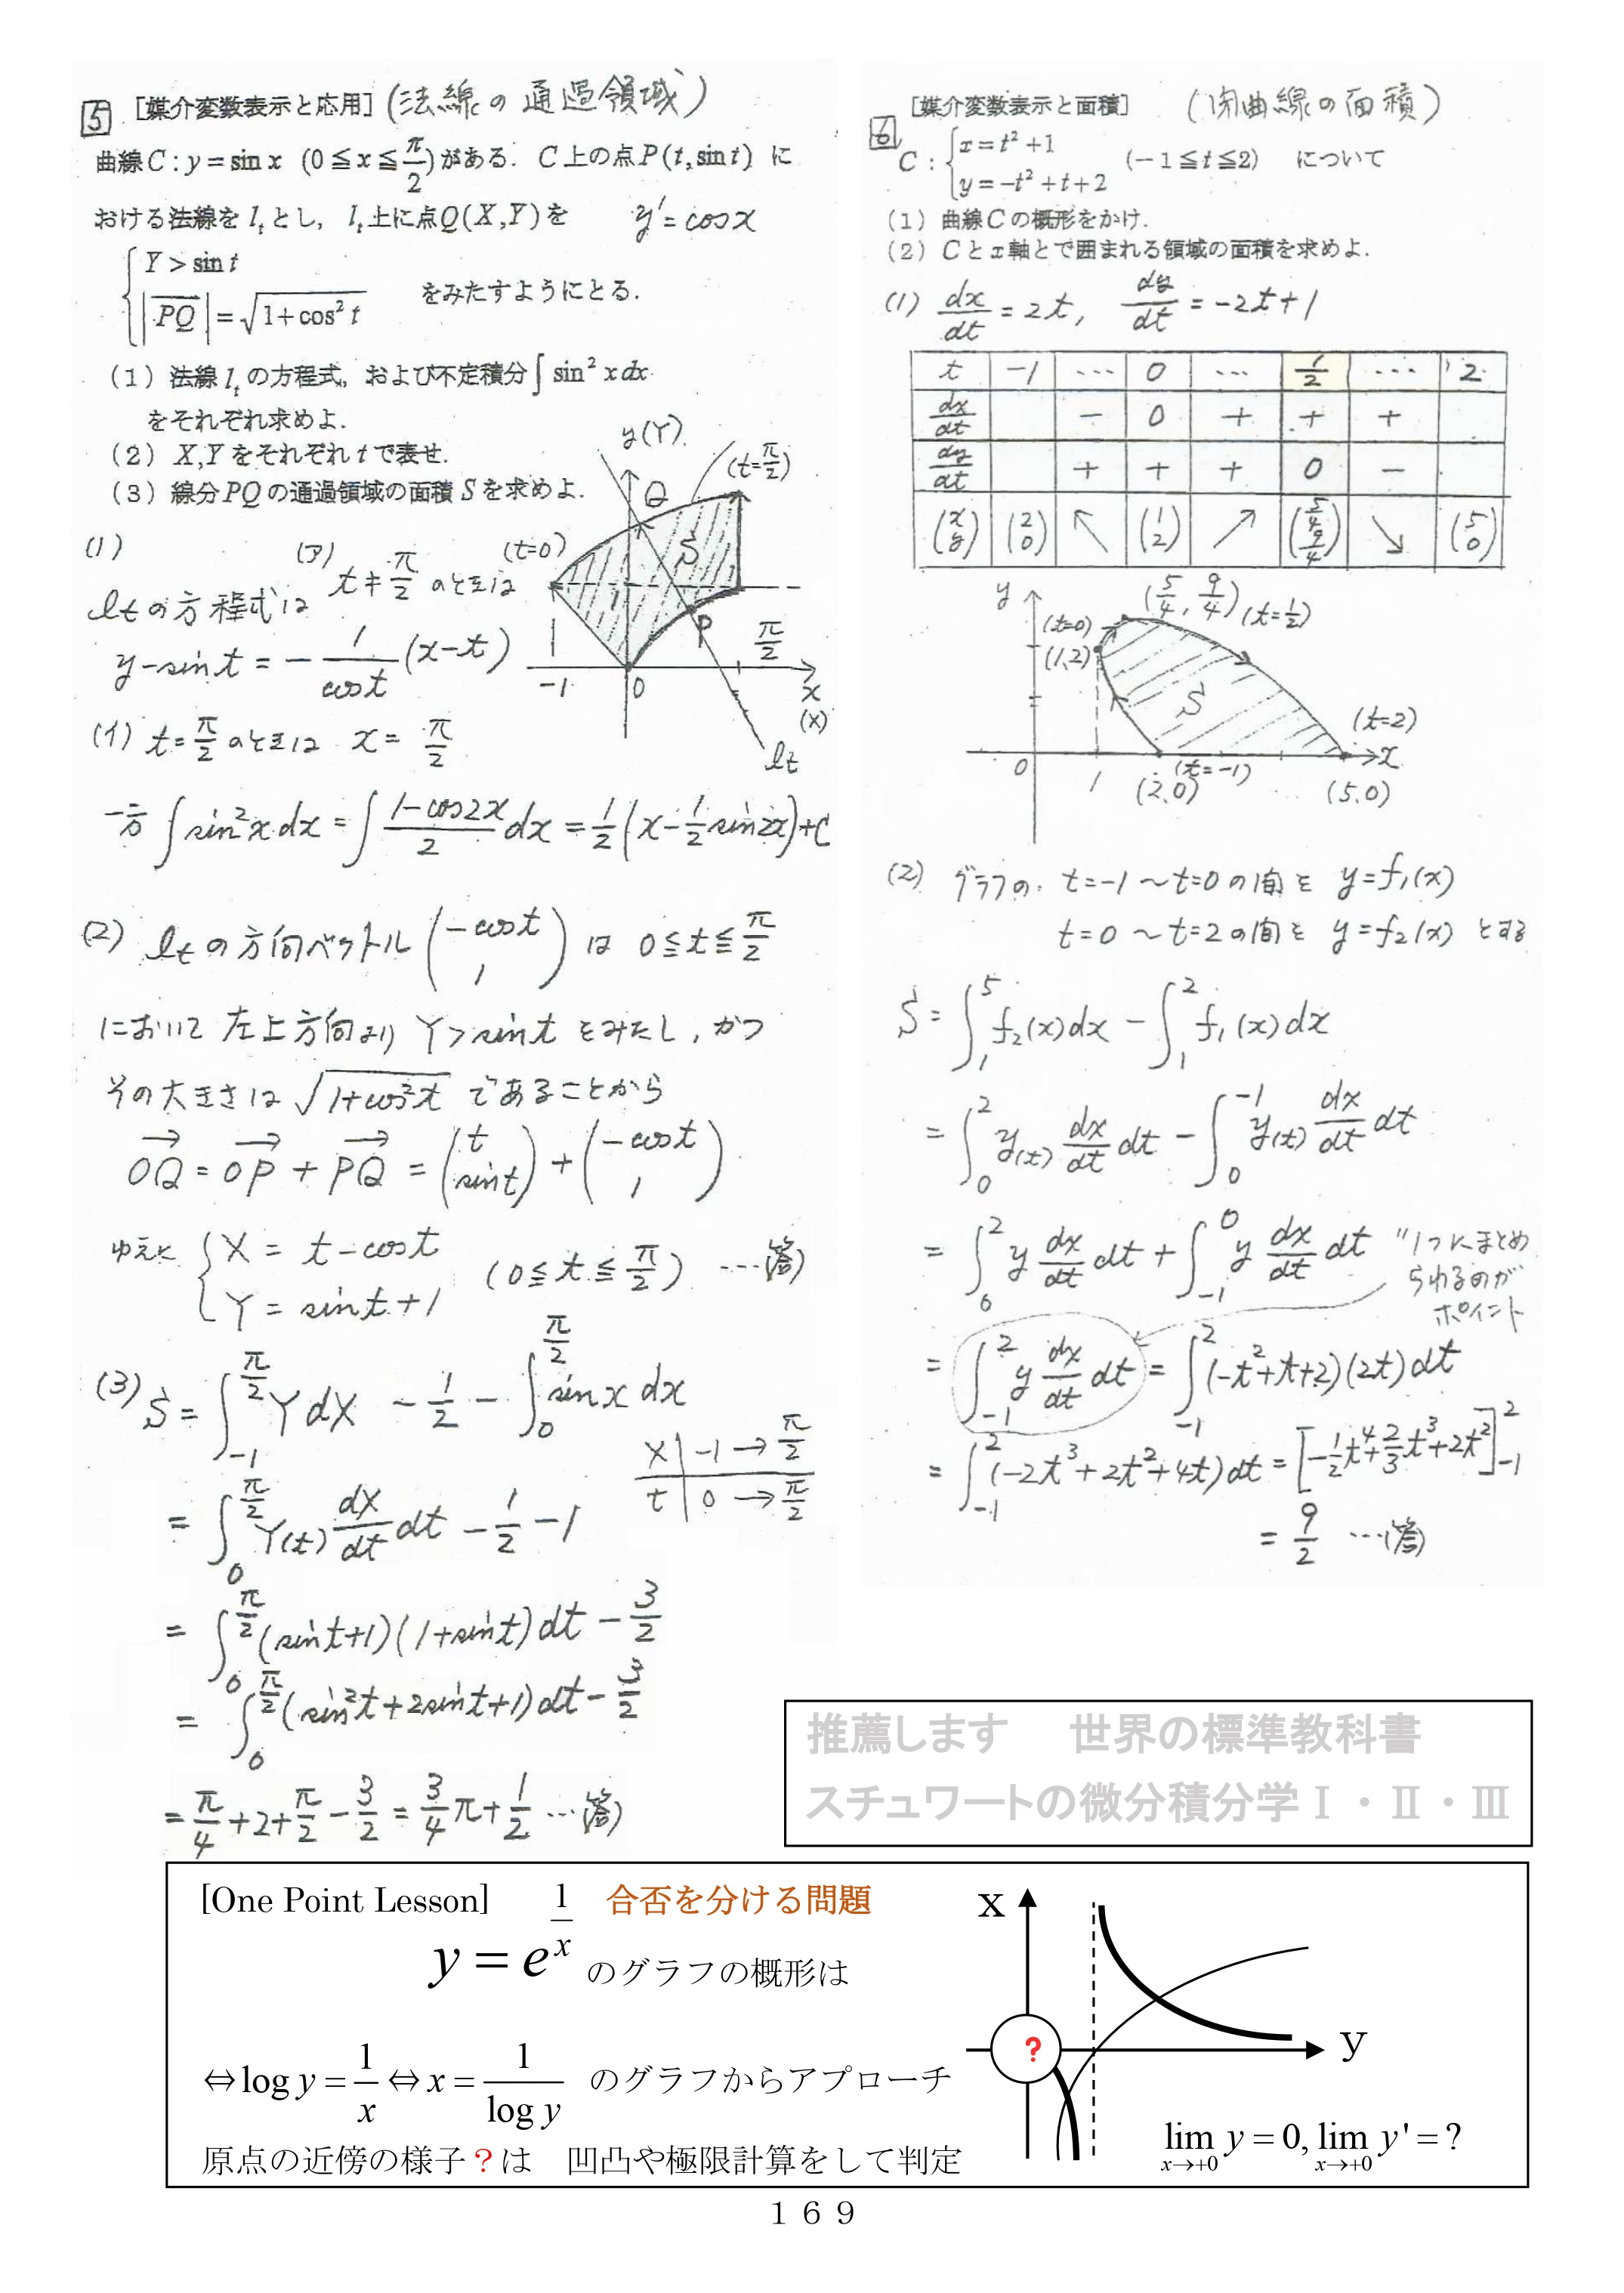 5 [媒介変数表示と応用] (法線の通過領域)
曲線C : y = sin x (0 ≦ x ≦ π/2) がある. C上の点P(t, sin t) に
おける法線を l_t とし, l_t 上に点Q(X,Y)を y' = cos x
{ Y > sin t
|PQ→| = √(1+cos² t) をみたすようにとる.
(1) 法線 l_t の方程式, および不定積分 ∫ sin² x dx
をそれぞれ求めよ.
(2) X,Y をそれぞれ t で表せ.
(3) 線分PQの通過領域の面積Sを求めよ.
y(Y)
(t=π/2)
Q
(t=0)
S
1
P
π/2
-1 0 x
(X)
l_t
(1)
l_t の方程式は (ア) t ≠ π/2 のときは
y - sin t = - 1/cos t (x - t)
(イ) t = π/2 のときは x = π/2
一方 ∫ sin² x dx = ∫ (1-cos2x)/2 dx = 1/2 (x - 1/2 sin 2x) + C
(2) l_t の方向ベクトル (-cos t, 1) は 0 ≦ t ≦ π/2
において 左上方向より Y > sin t をみたし, かつ
その大きさは √(1+cos² t) であることから
OQ→ = OP→ + PQ→ = (t, sin t) + (-cos t, 1)
ゆえに { X = t - cos t
Y = sin t + 1 (0 ≦ t ≦ π/2) …(答)
(3) S = ∫_{-1}^{π/2} Y dX - 1/2 - ∫_0^{π/2} sin x dx
X | -1 → π/2
t | 0 → π/2
= ∫_0^{π/2} Y(t) dX/dt dt - 1/2 - 1
= ∫_0^{π/2} (sin t + 1)(1 + sin t) dt - 3/2
= ∫_0^{π/2} (sin² t + 2 sin t + 1) dt - 3/2
= π/4 + 2 + π/2 - 3/2 = 3/4 π + 1/2 …(答)
6 [媒介変数表示と面積] (閉曲線の面積)
C : { x = t² + 1
y = -t² + t + 2 (-1 ≦ t ≦ 2) について
(1) 曲線Cの概形をかけ.
(2) Cとx軸とで囲まれる領域の面積を求めよ.
(1) dx/dt = 2t, dy/dt = -2t + 1
t | -1 | … | 0 | … | 1/2 | … | 2
dx/dt | | - | 0 | + | + | + |
dy/dt | | + | + | + | 0 | - |
(x y) | (2 0) | ↖ | (1 2) | ↗ | (5/4 9/4) | ↘ | (5 0)
y
(5/4, 9/4) (t=1/2)
(t=0)
(1,2)
S
(t=2)
x
0 1 (t=-1)
(2,0) (5,0)
(2) グラフの t=-1 ~ t=0 の間を y = f₁(x)
t=0 ~ t=2 の間を y = f₂(x) とする
S = ∫_1^5 f₂(x)dx - ∫_1^2 f₁(x)dx
= ∫_0^2 y(t) dx/dt dt - ∫_0^{-1} y(t) dx/dt dt
= ∫_0^2 y dx/dt dt + ∫_{-1}^0 y dx/dt dt "1つにまとめ
られるのが
ポイント
= ∫_{-1}^2 y dx/dt dt = ∫_{-1}^2 (-t²+t+2)(2t)dt
= ∫_{-1}^2 (-2t³+2t²+4t)dt = [-1/2 t⁴ + 2/3 t³ + 2t²]_{-1}^2
= 9/2 …(答)
推薦します 世界の標準教科書
スチュワートの微分積分学Ⅰ・Ⅱ・Ⅲ
[One Point Lesson] 合否を分ける問題
y = e^{1/x} のグラフの概形は
⇔ log y = 1/x ⇔ x = 1/log y のグラフからアプローチ
原点の近傍の様子?は 凹凸や極限計算をして判定
x
?
y
lim_{x→+0} y = 0, lim_{x→+0} y' = ?
169